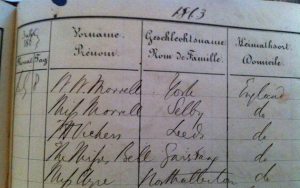 1863
Vorname Geschlechtsname Heimathsort
Prénom. Nom de Famille. Domicile.
Monat Tag
W. W. Morrell York England
Miss Morrell Selby do
Vickers Leeds do
The Misses Bell do
Miss Ayre Northallerton do